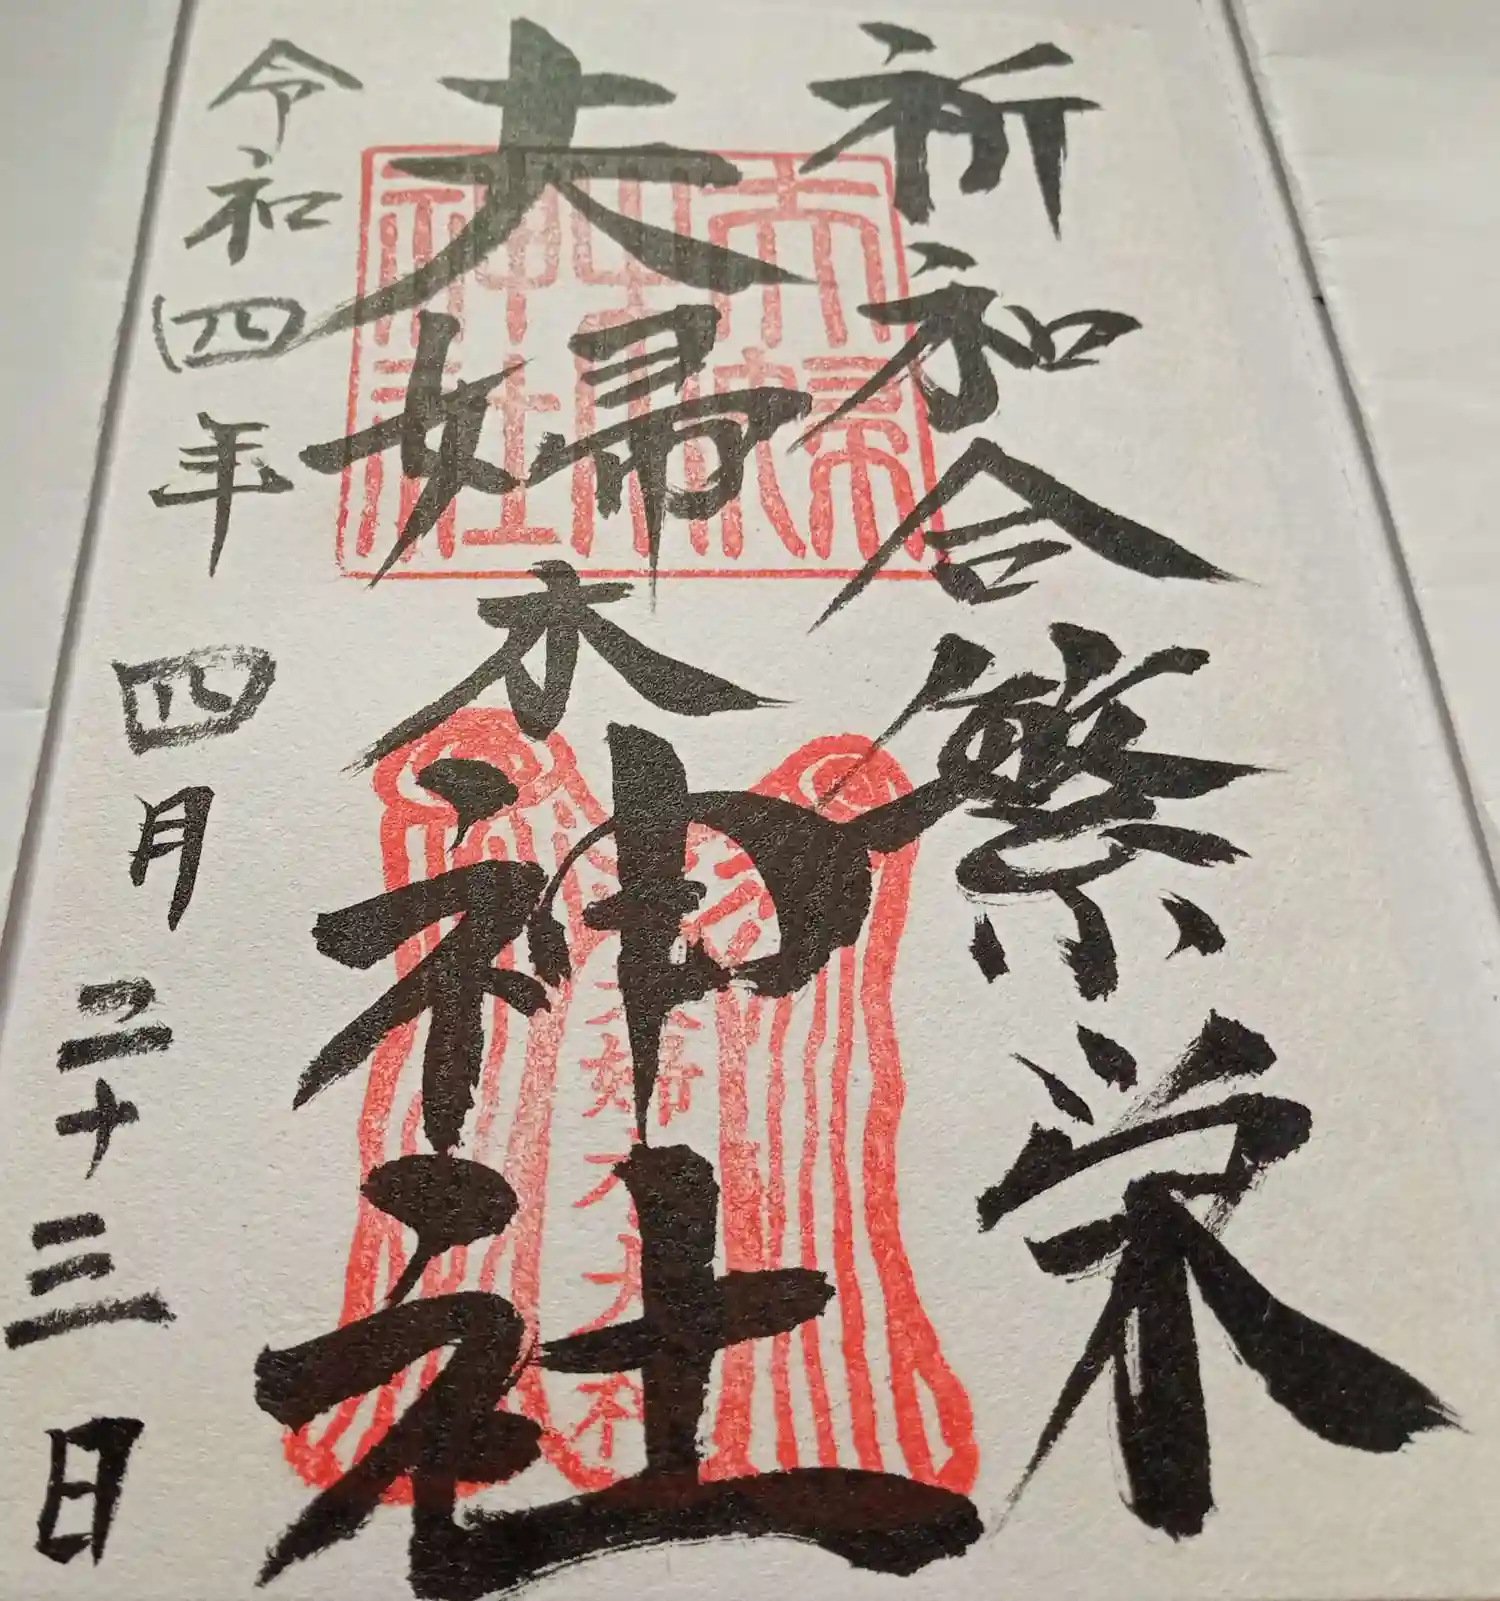 祈和合繁栄
夫婦木神社
令和四年四月二十三日
夫婦木神社